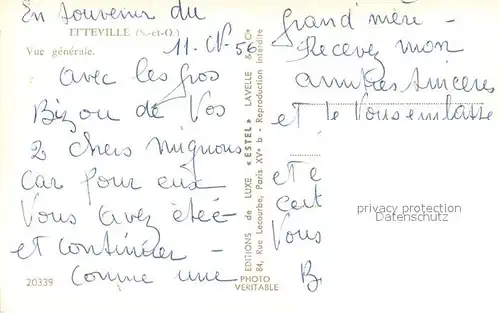 En souvenir du
ITTEVILLE (S.-et-O.)
11-IV-56
Vue générale.
avec les gros
Bizou de Vos
2 chers mignons
Car pour eux
Vous avez étée
et continuer -
Comme une
20339
PHOTO
VERITABLE
EDITIONS de LUXE «ESTEL» LAVELLE & Cie
84, Rue Lecourbe, Paris XVe b - Reproduction interdite
grand'mère -
Recevez mon
amitiés sincères
et je Vous embrasse
et
Vous
B.
privacy protection
Datenschutz